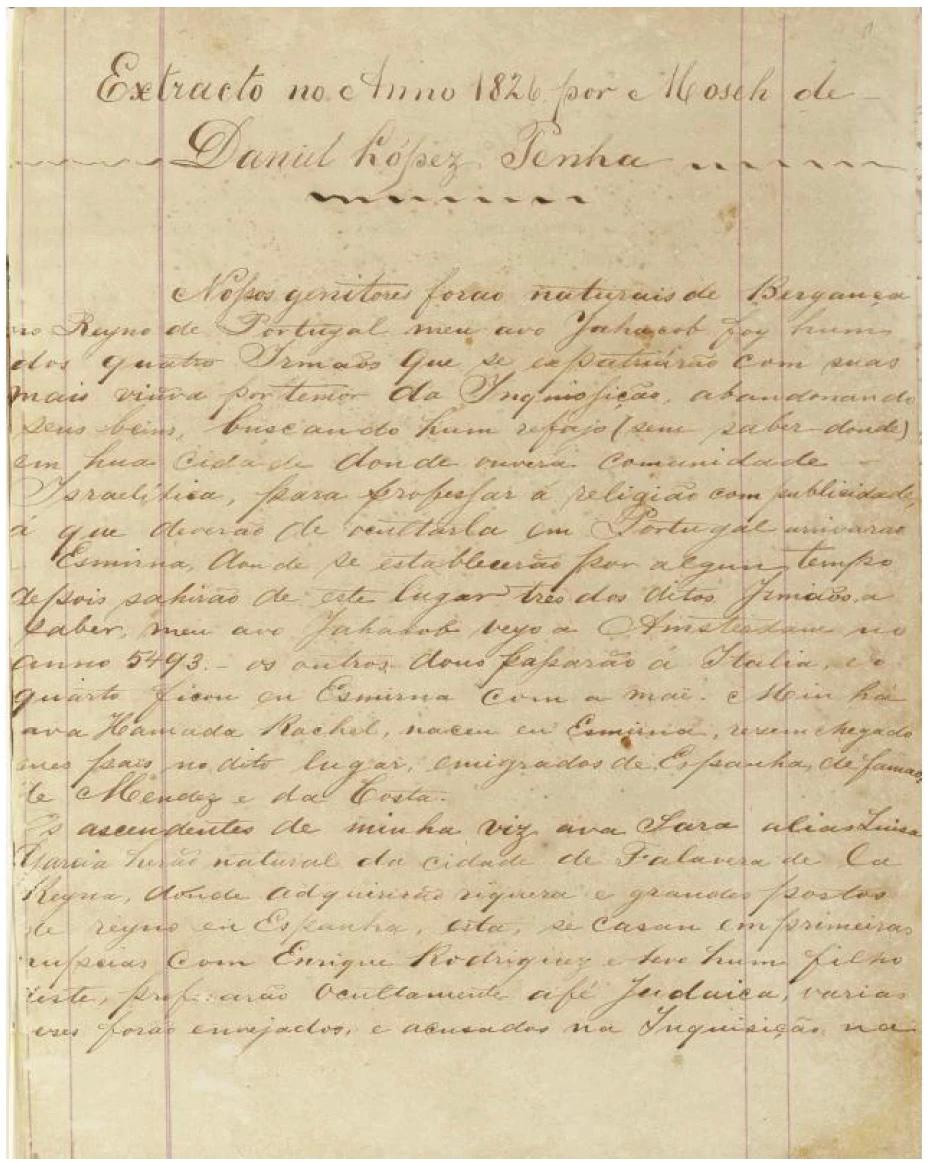 Extracto no Anno 1826 por Moseh de
Daniel López Penha
Nossos genitores forao naturais de Bergança
no Reyno de Portugal meu avo Jahacob foy hum
dos quatro Irmaõs que se expatriárão com suas
mais viuva por temor da Inquisição, abandonando
seus beins, buscando hum refujo (sem saber donde)
em hua cidade donde ouvera comunidade
Israelítica, para professar a religião com publicidade,
á que diverão de ocultarla em Portugal arrivarao
Esmirna, donde se establecerão por algun tempo
depois sahirão de este lugar tres dos ditos Irmaõs, a
saber, meu avo Jahacob veyo a Amsterdam no
anno 5493. - os outros dous passarão á Italia, e o
quarto ficou en Esmirna com a mai. Minha
ava Hamada Rachel, naceu en Esmirna, resemchegado
pais no dito lugar, emigrados de Espanha, de famas
de Mendez e da Costa.
Os ascendentes de minha viz ava Sara alias Luisa
Garcia herão natural da cidade de Talavera de la
Reyna, donde adquirirão riquera e grandes postos
de reyno en Espanha, esta, se casan em primeiras
nupscias com Enrique Rodriguez e teve hum filho
este, profesarão ocultamente a fé Judaica, varias
forão envejados, e acusados na Inquisição na